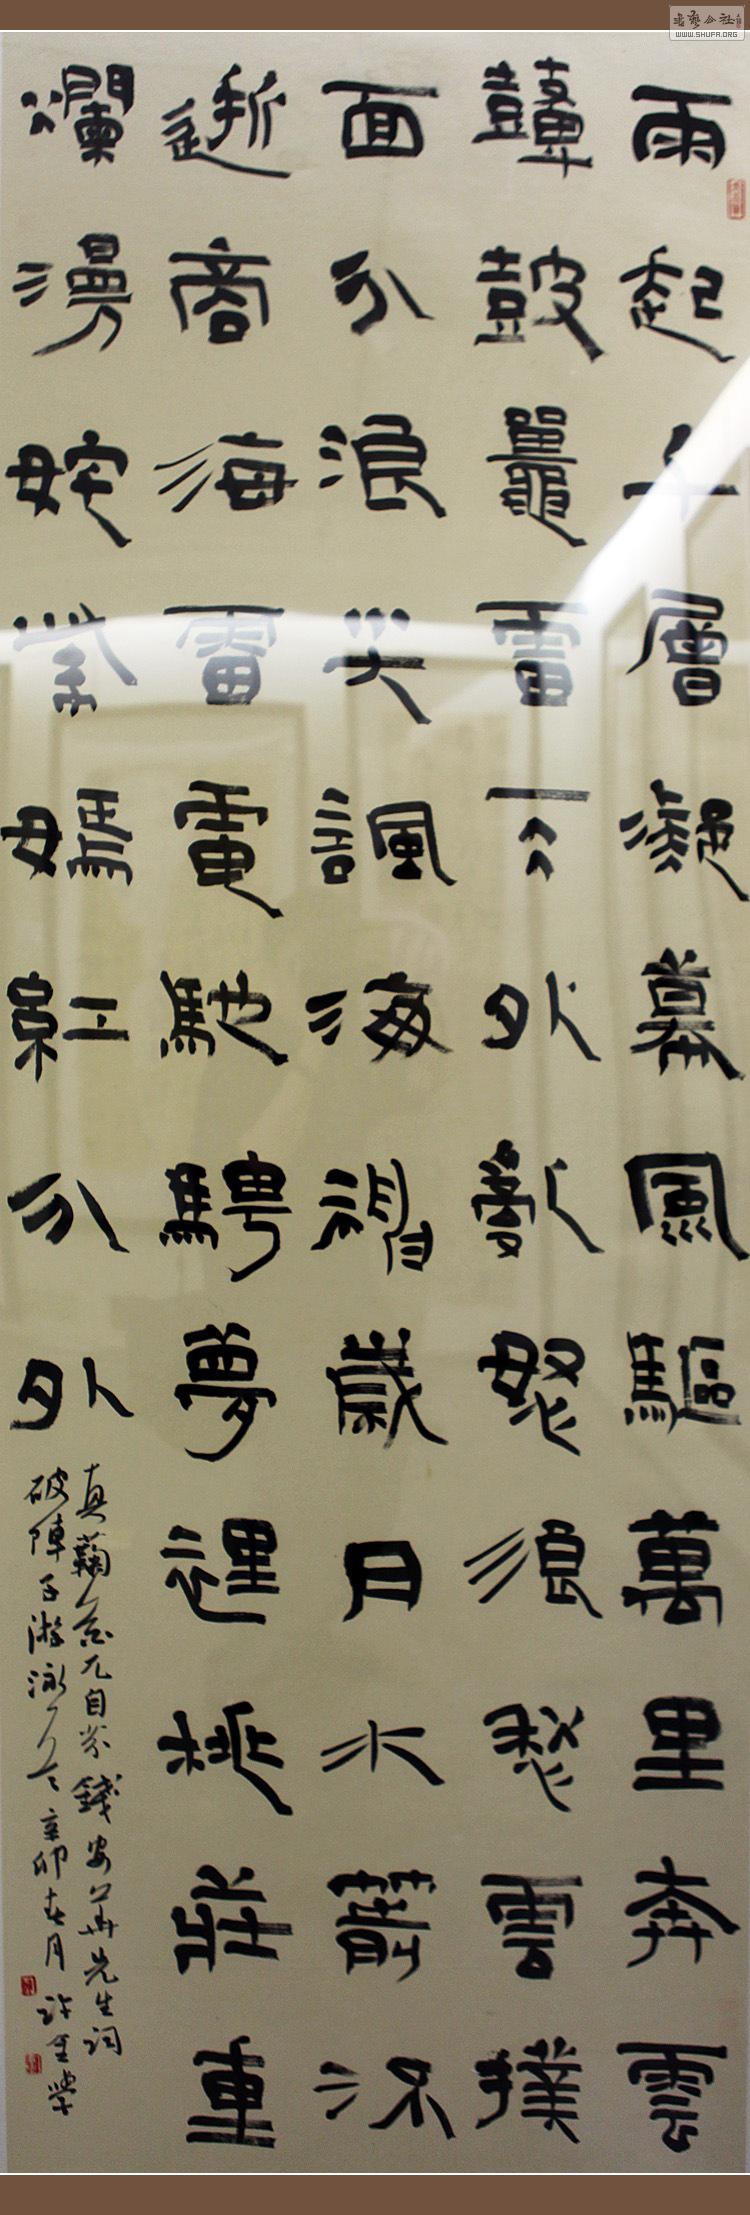 書藝公社
WWW.SHUFA.ORG
雨起千層凝幕風驅萬里奔雲
鼙鼓鼉雷天外怒浪愁雲撲
面分浪尖諷海神歲月水箭
逝商海雷電馳騁夢裡桃莊重
爛漫姹紫嫣紅分外
真菊尤自芬錢安華先生詞
破陣子游泳辛卯春月許金學